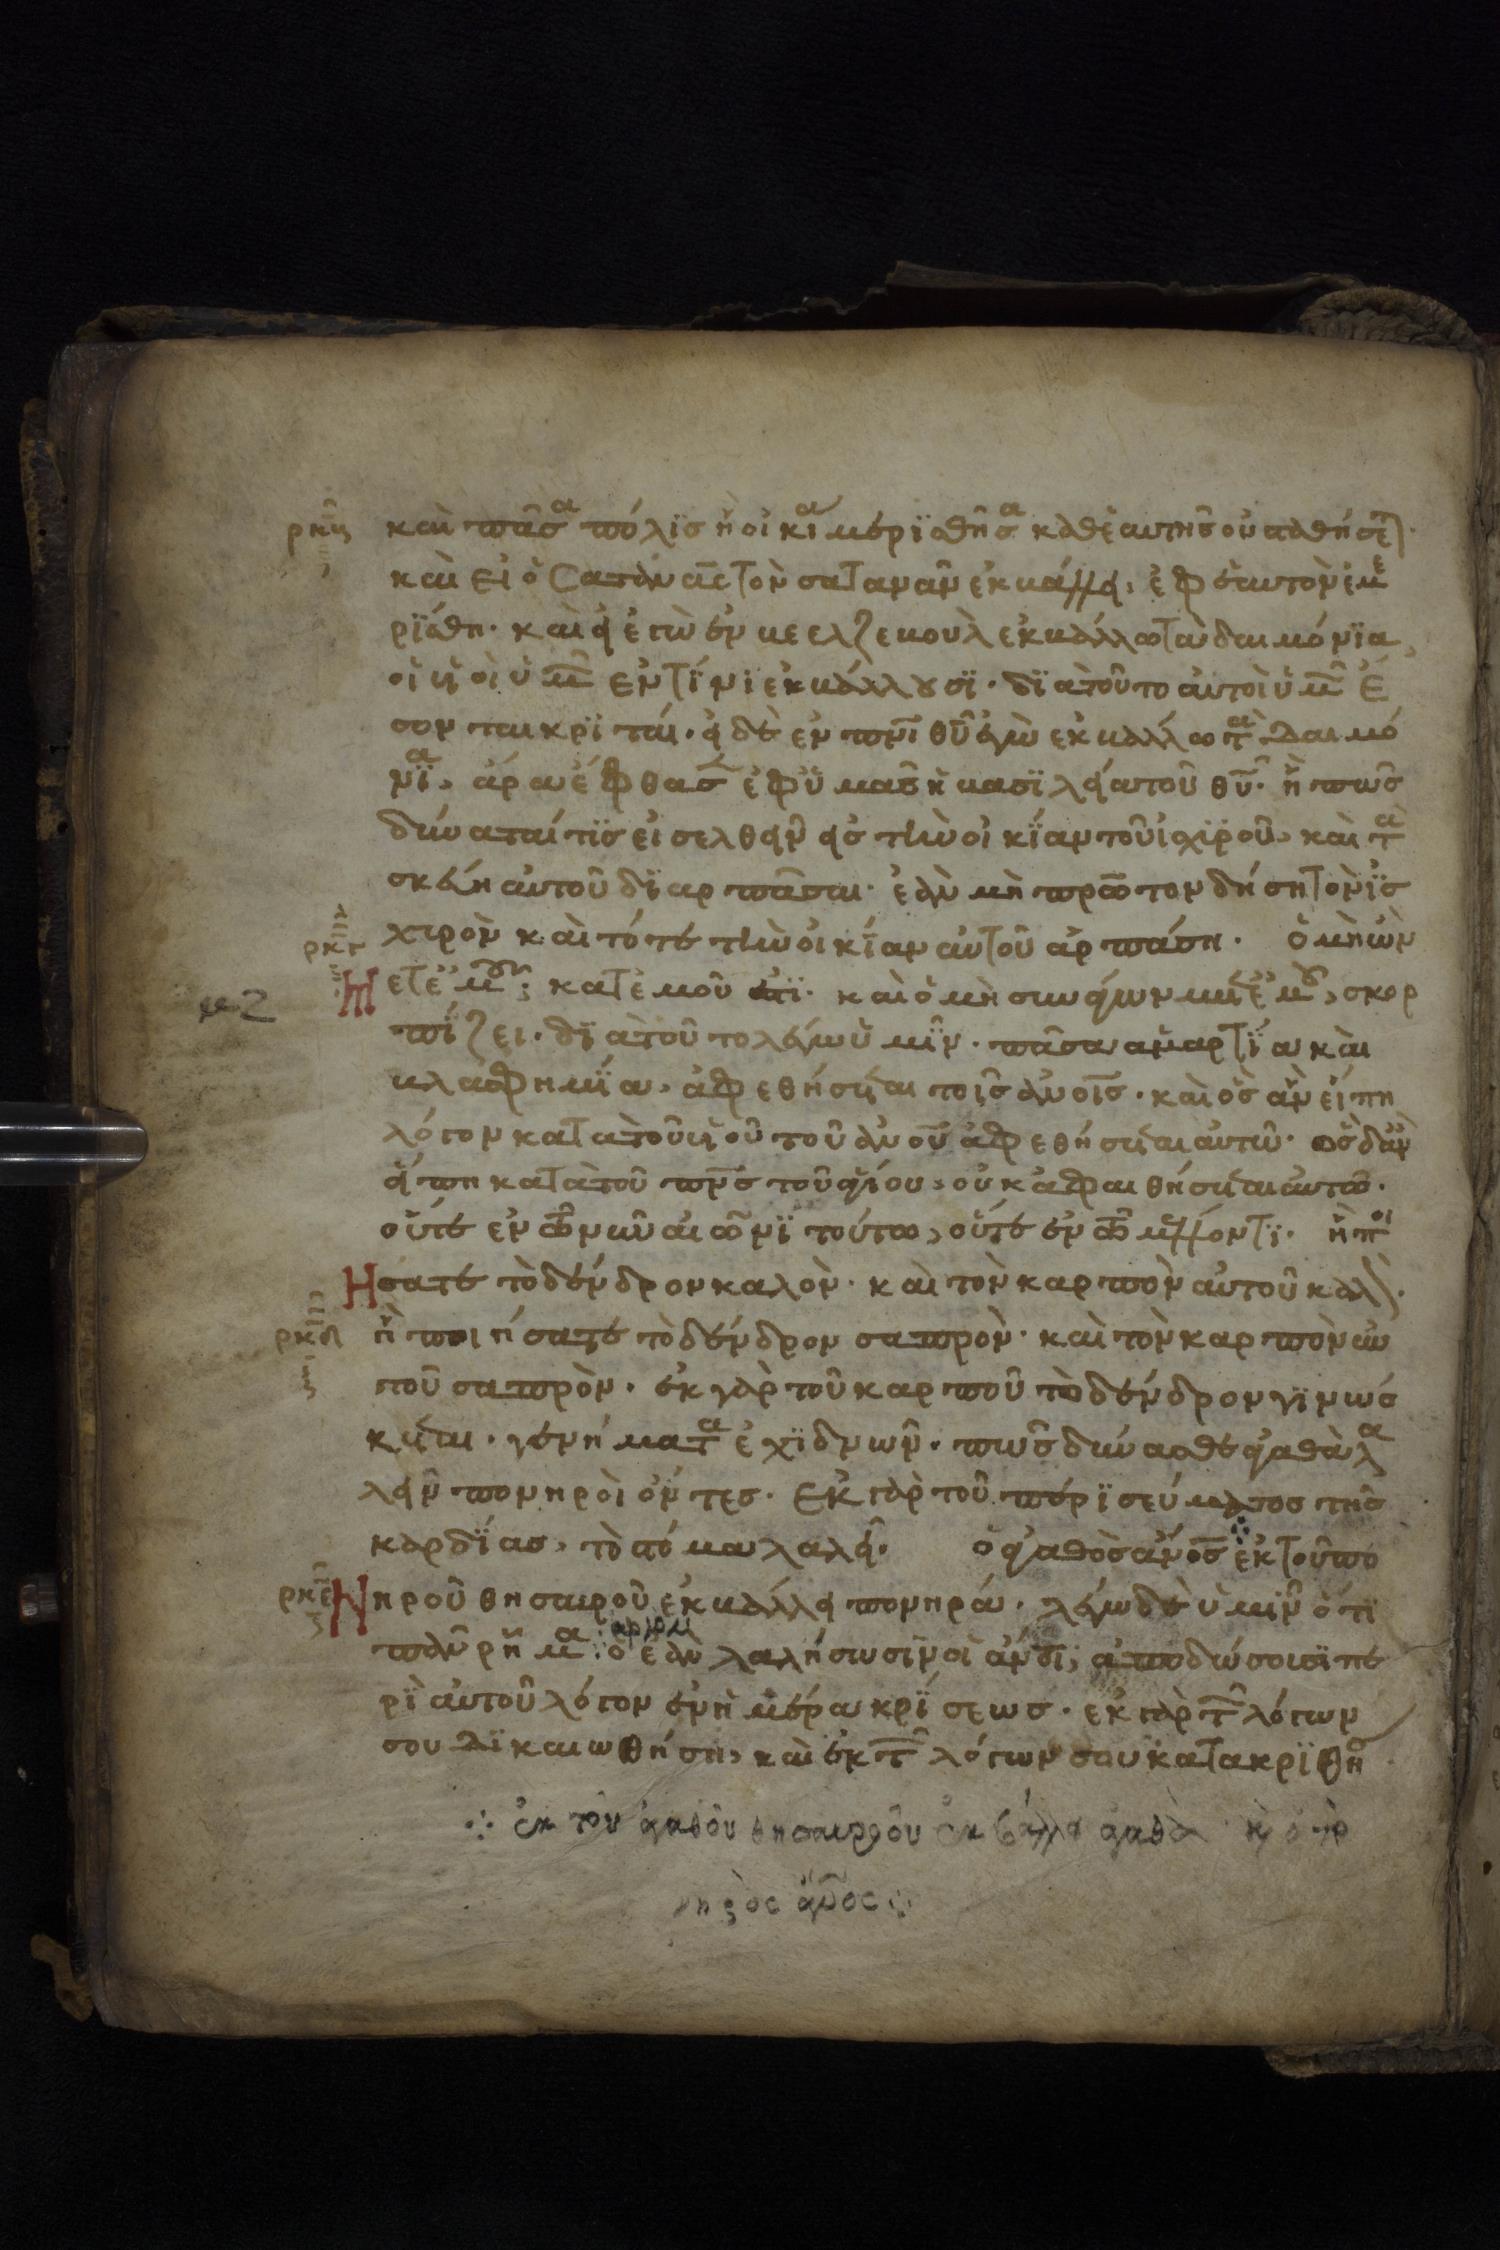 καὶ πᾶσα πόλϊσ ἢ οἰκία μερϊσθῆσα καθ ἑαυτῆσ οὐ σταθήσεται·
καὶ εἰ ὁ Σατανᾶσ τὸν σατανᾶν ἐκβάλλει, ἐφ ἑαυτὸν ἐμε
ρϊσθη· καὶ εἰ ἐγὼ ἐν βεελζεβουλ ἐκβάλλω τὰ δαιμόνϊα,
οἱ υἱοὶ ὑμῶν ἐν τίνϊ ἐκβάλλουσϊ· δϊατοῦτο αὐτοὶ ὑμῶν ἔ
σονται κρϊταί· εἰ δὲ ἐν πνϊ θῦ ἐγὼ ἐκβάλλω τὰ δαιμό
νϊα, ἄρα ἔφθασεν ἐφ ὑμᾶσ ἡ βασϊλεία τοῦ θῦ· ἢ πῶσ
δύναταί τϊσ εἰσελθεῖν εἰσ τὴν οἰκίαν τοῦ ἰσχϊροῦ, καὶ τὰ
σκεύη αὐτοῦ δϊαρπᾶσαι· ἐὰν μὴ πρῶτον δήση τὸν ἰσ
χϊρὸν καὶ τότε τὴν οἰκίαν αὐτοῦ ἁρπάση· ὁ μὴ ὢν
μετ ἐμοῦ, κατ ἐμοῦ ἐστϊ· καὶ ὁ μὴ συνάγων μετ ἐμοῦ, σκορ
πίζει· δϊατοῦτο λέγω ὑμῖν· πᾶσα ἁμαρτία καὶ
βλασφημία, ἀφεθήσεται τοῖσ ἀνοισ· καὶ ὃσ ἂν εἴπη
λόγον κατὰ τοῦ υἱοῦ τοῦ ἀνου ἀφεθήσεται αὐτῶ· ὃσ δ ἂν
εἴπη κατὰ τοῦ πνσ τοῦ ἁγίου, οὐκ ἀφαιθήσεται αὐτῶ·
οὔτε ἐν τῶ νῦν αἰῶνϊ τούτω, οὔτε ἐν τῶ μέλλοντϊ· ἢ ποι
Ησατε τὸ δένδρον καλὸν· καὶ τὸν καρπὸν αὐτοῦ καλὸν·
ἢ ποιήσατε τὸ δένδρον σαπρὸν· καὶ τὸν καρπὸν αὐ
τοῦ σαπρὸν· ἐκ γὰρ τοῦ καρποῦ τὸ δένδρον γϊνώσ
κεται· γενήματα ἐχϊδνῶν· πῶσ δύνασθε ἀγαθὰ λα
λεῖν πονηροὶ ὄντεσ· Ἐκ γὰρ τοῦ περϊσεύματοσ τῆσ
καρδίασ, τὸ στόμα λαλεῖ· ὁ ἀγαθὸσ ἄνοσ ἐκ τοῦ πο
Νηροῦ θησαυροῦ ἐκβάλλει πονηρά· λέγω δὲ ὑμῖν ὅτϊ
πᾶν ρῆμα ἀργὸν ὃ ἐὰν λαλήσωσϊν οἱ ἄνοι, ἀποδώσουσϊ πε
ρϊ αὐτοῦ λόγον ἐν ἡμέρα κρϊσεωσ· ἐκ γὰρ τῶν λόγων
σου δϊκαιωθήση, καὶ ἐκ τῶν λόγων σου κατακρϊθήση
∴ ἐκ τοῦ ἀγαθοῦ θησαυροῦ ἐκβάλλει ἀγαθὰ κ ὁ πο
νηρὸς ἄνος